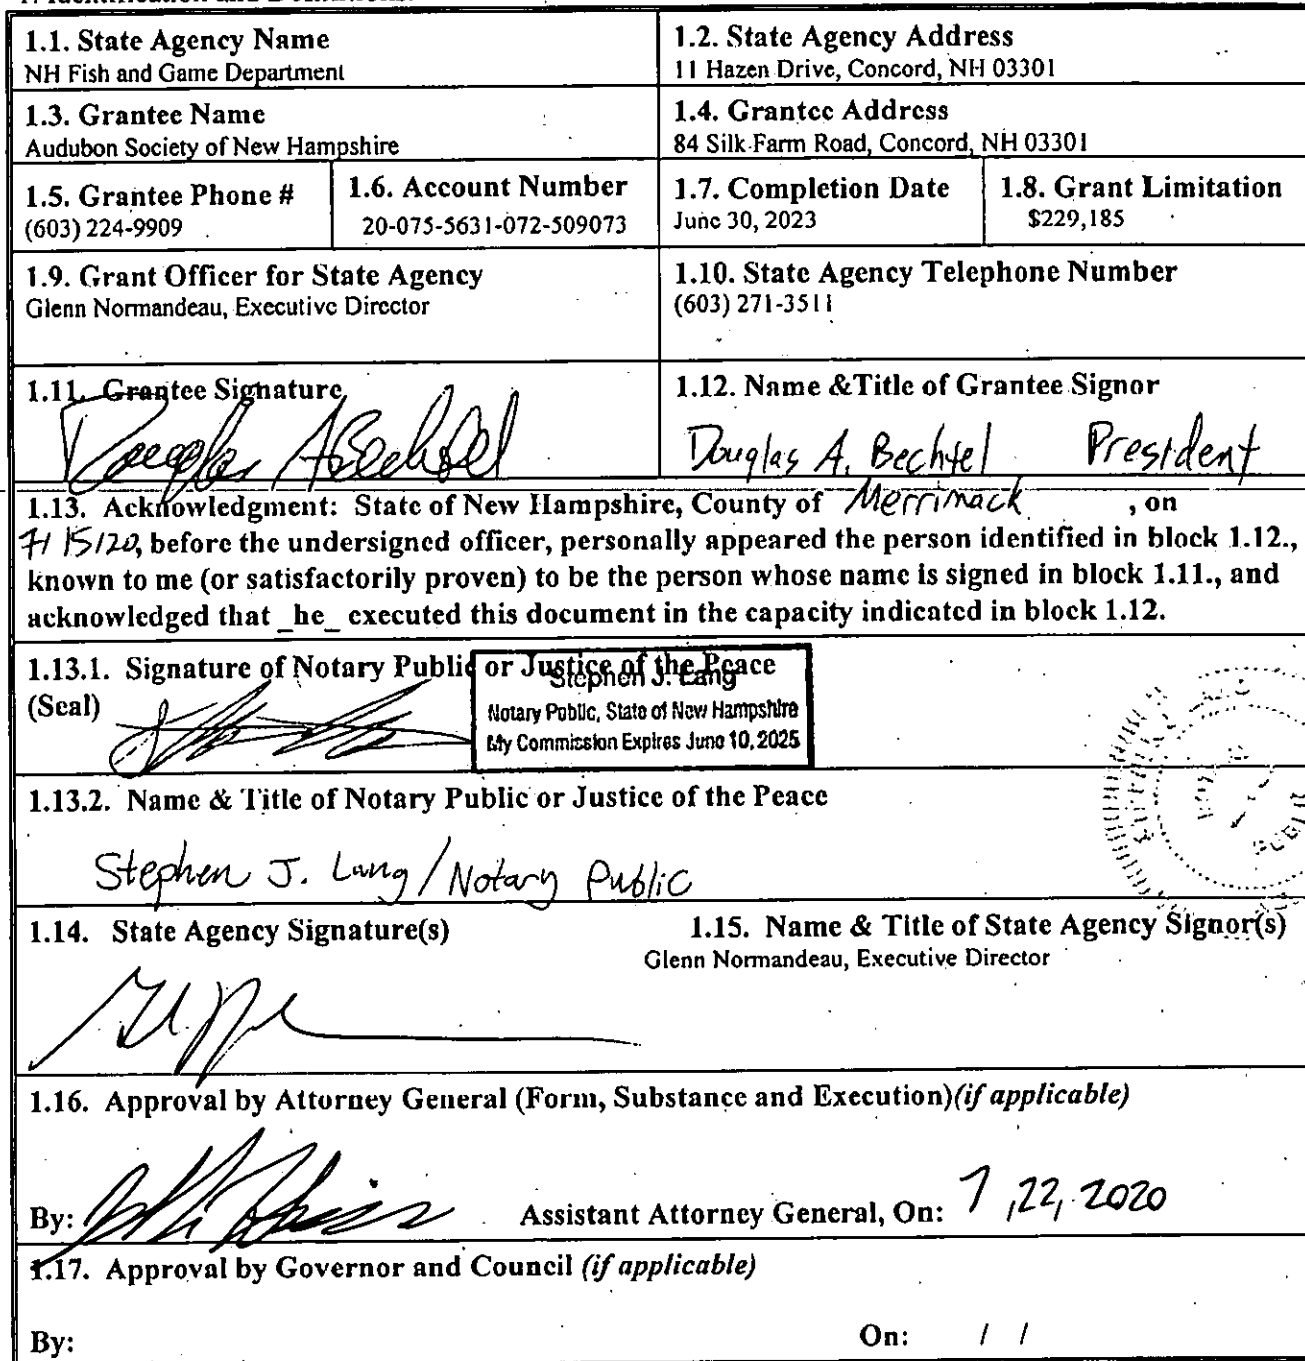 1.1. State Agency Name
NH Fish and Game Department
1.2. State Agency Address
11 Hazen Drive, Concord, NH 03301
1.3. Grantee Name
Audubon Society of New Hampshire
1.4. Grantee Address
84 Silk Farm Road, Concord, NH 03301
1.5. Grantee Phone #
(603) 224-9909
1.6. Account Number
20-075-5631-072-509073
1.7. Completion Date
June 30, 2023
1.8. Grant Limitation
$229,185
1.9. Grant Officer for State Agency
Glenn Normandeau, Executive Director
1.10. State Agency Telephone Number
(603) 271-3511
1.11. Grantee Signature
Douglas A Bechtel
1.12. Name &Title of Grantee Signor
Douglas A. Bechtel President
1.13. Acknowledgment: State of New Hampshire, County of Merrimack , on
7/15/20, before the undersigned officer, personally appeared the person identified in block 1.12.,
known to me (or satisfactorily proven) to be the person whose name is signed in block 1.11., and
acknowledged that _he_ executed this document in the capacity indicated in block 1.12.
1.13.1. Signature of Notary Public or Justice of the Peace
(Seal)
Stephen J. Lang
Notary Public, State of New Hampshire
My Commission Expires June 10, 2025
1.13.2. Name & Title of Notary Public or Justice of the Peace
Stephen J. Lang/Notary Public
1.14. State Agency Signature(s)
1.15. Name & Title of State Agency Signor(s)
Glenn Normandeau, Executive Director
1.16. Approval by Attorney General (Form, Substance and Execution)(if applicable)
By: Assistant Attorney General, On: 7,22,2020
1.17. Approval by Governor and Council (if applicable)
By: On: / /